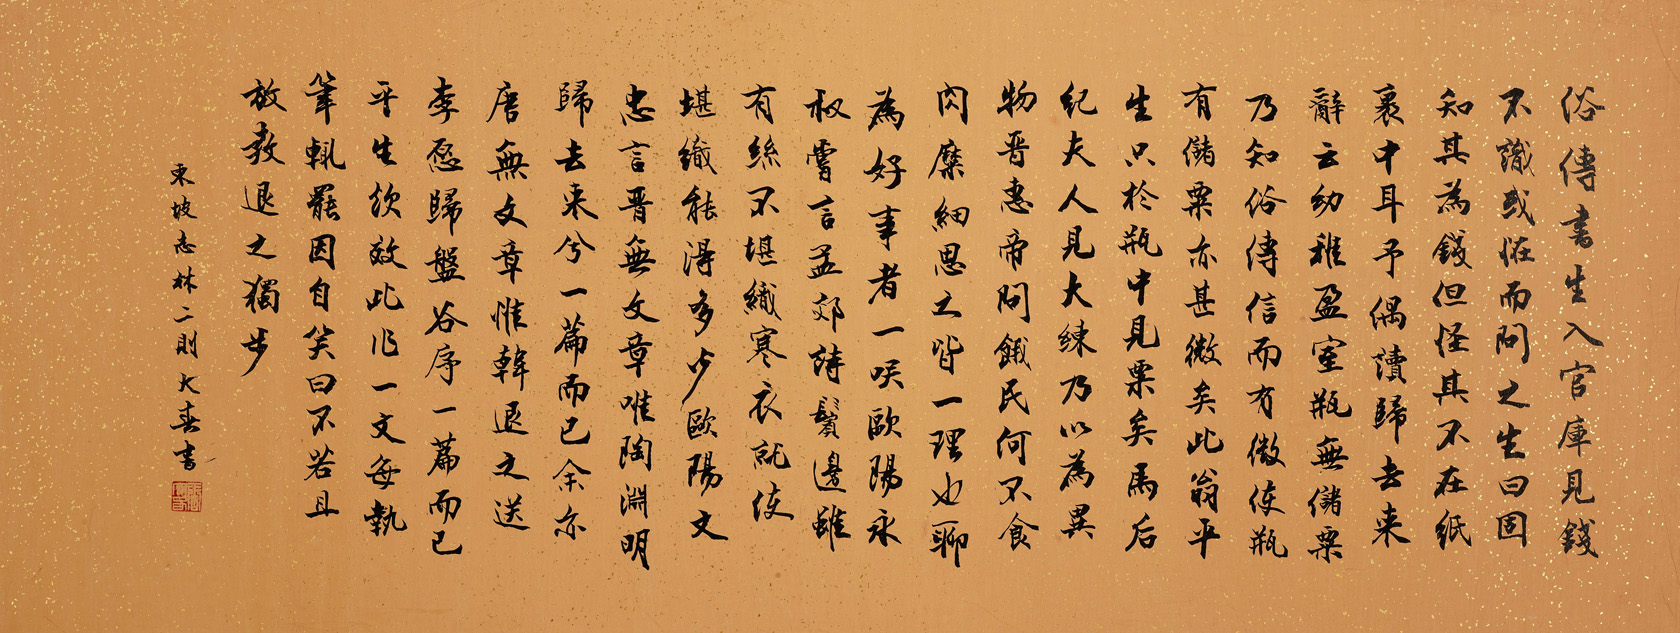 俗傳書生入官庫見錢
不識或怪而問之生曰固
知其為錢但怪其不在紙
裹中耳予偶讀歸去来
辭云幼稚盈室瓶無儲粟
乃知俗傳信而有徵使瓶
有儲粟亦甚微矣此翁平
生只於瓶中見粟矣馬后
紀夫人見大練乃以為異
物晋惠帝問餓民何不食
肉糜細思之皆一理也聊
為好事者一咲歐陽永
叔嘗言孟郊詩鬢邊雖
有絲不堪織寒衣就使
堪織能得多少歐陽文
忠言晋無文章唯陶淵明
歸去来兮一篇而已余亦
唐無文章惟韓退之送
李愿歸盤谷序一篇而已
平生欲效此作一文每執
筆輒罷因自笑曰不若且
放教退之獨步
東坡志林二則 大春書